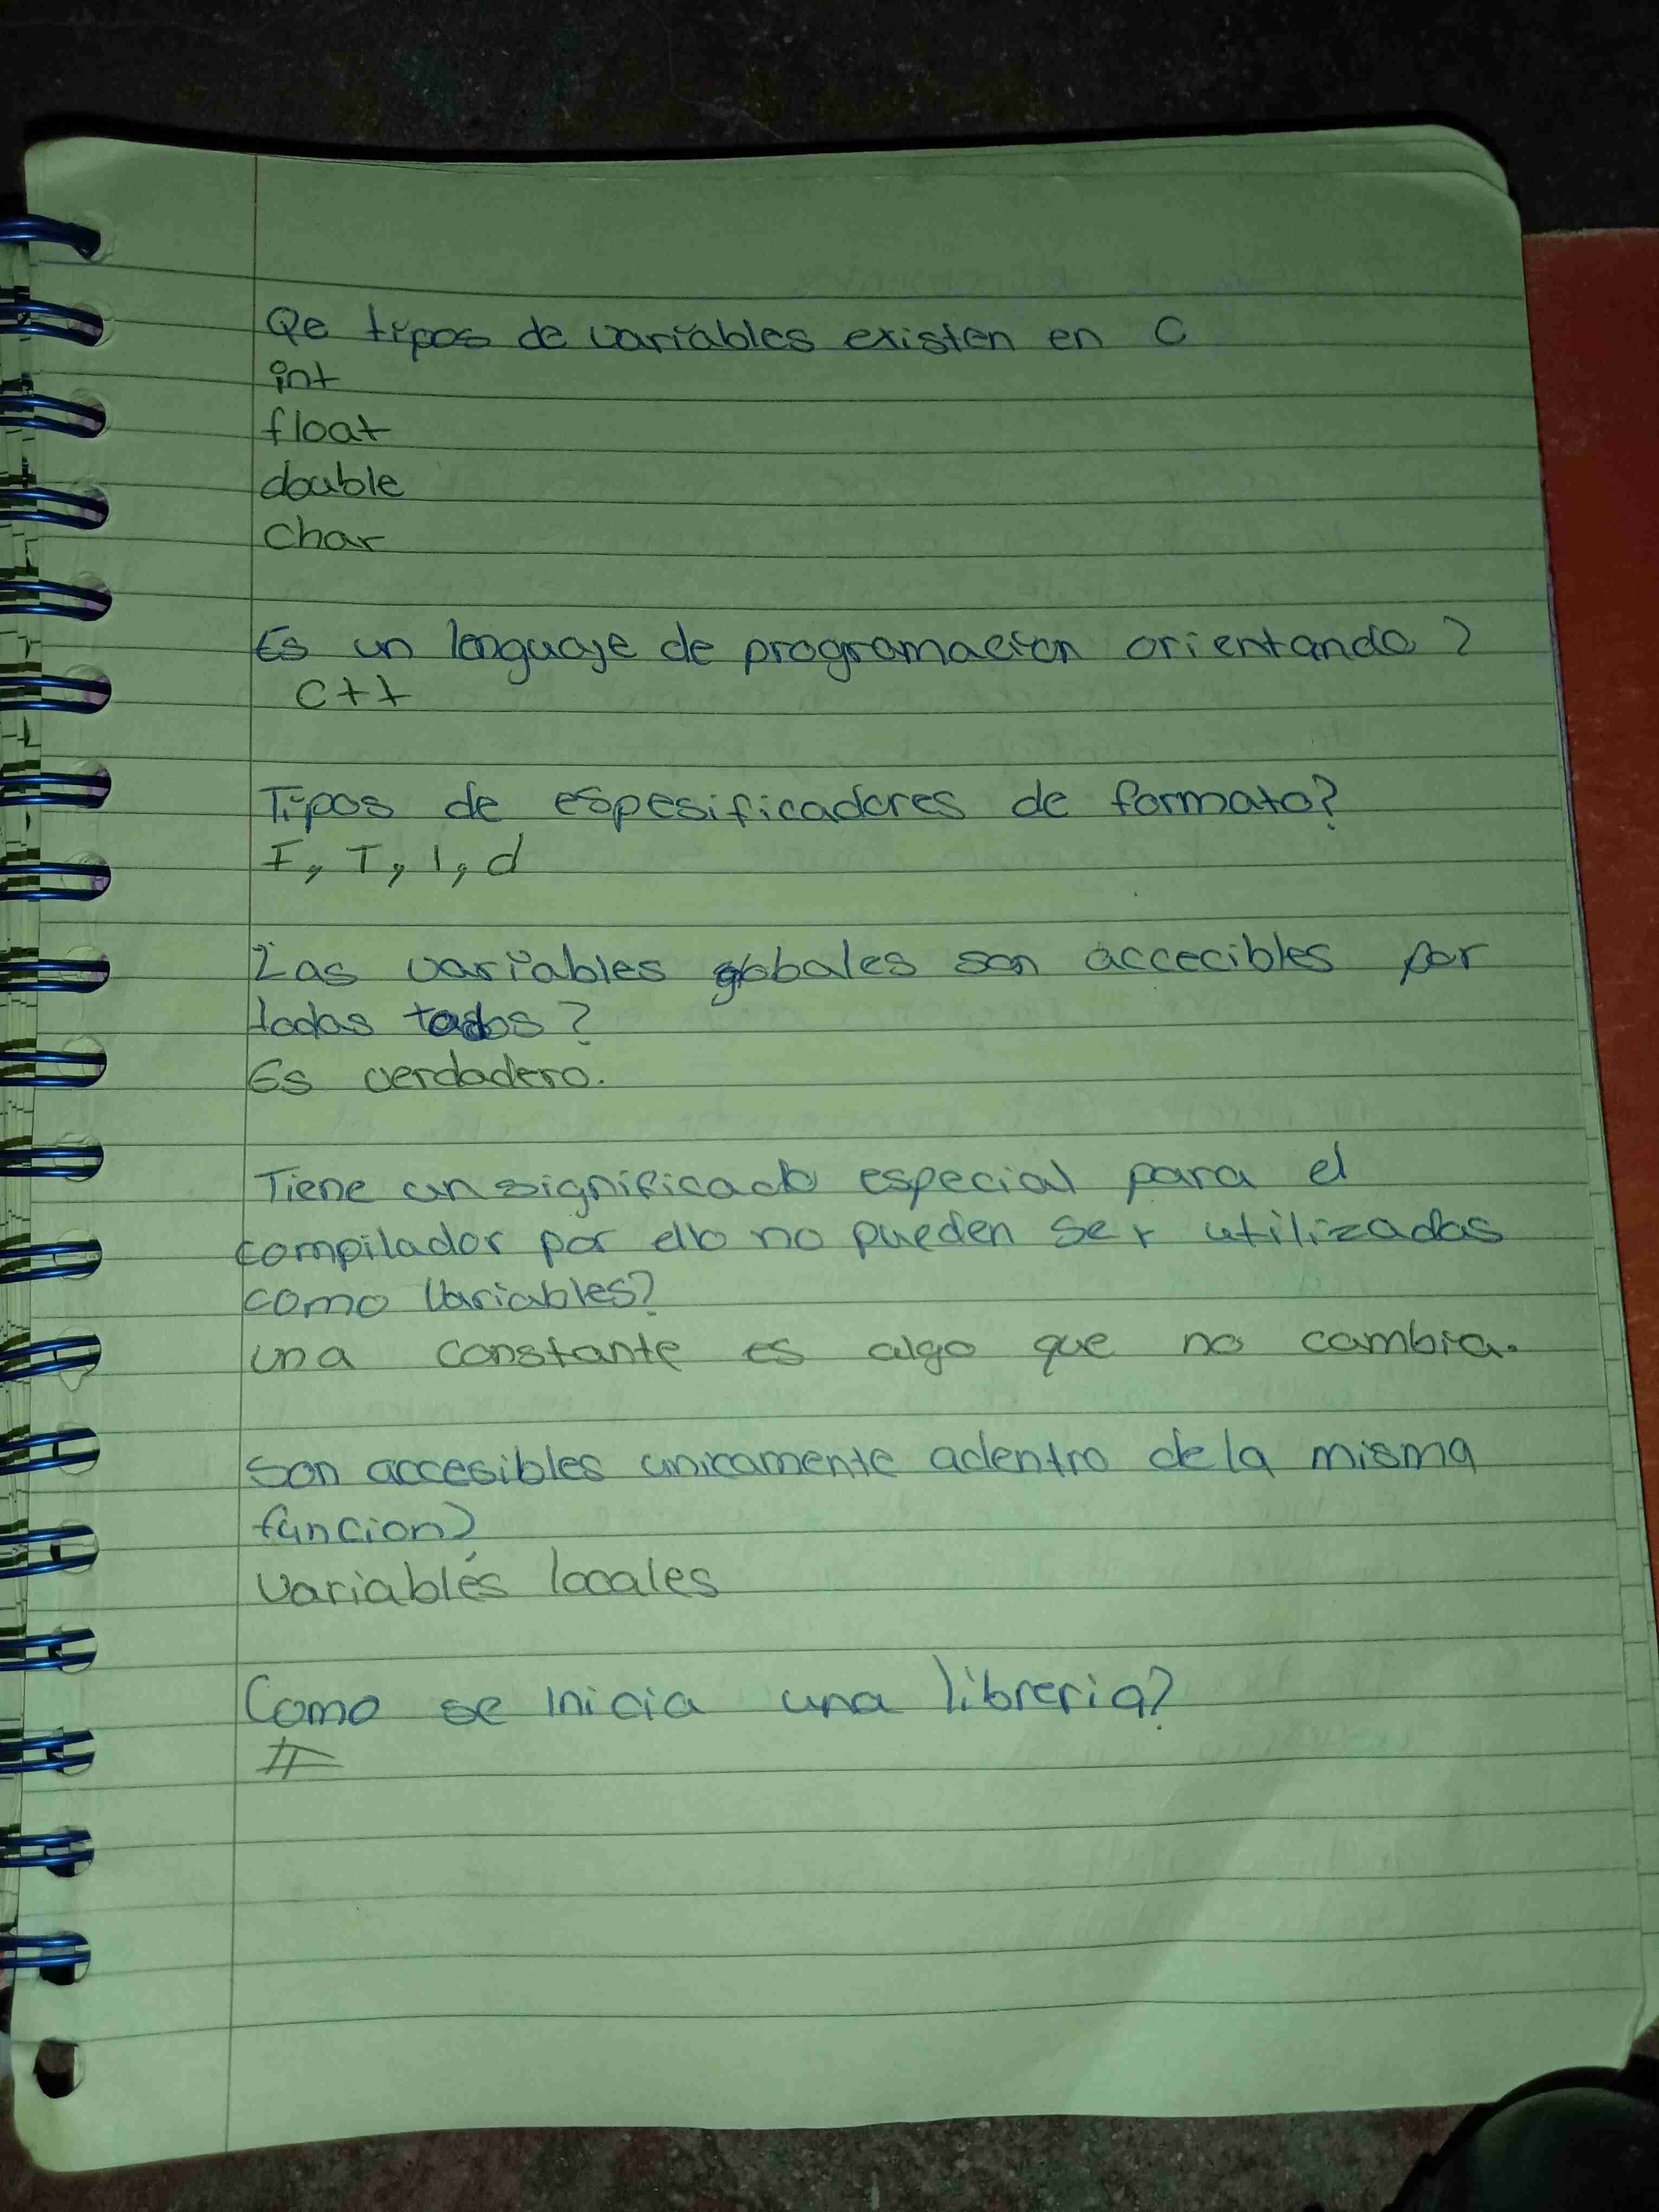 Qe tipos de variables existen en C
int
float
double
char
Es un lenguaje de programacion orientando?
C++
Tipos de espesificadores de formato?
F, T, 1, d
Las variables globales son accecibles por
todas todos?
Es verdadero.
Tiene un significado especial para el
compilador por ello no pueden ser utilizadas
como Variables?
una constante es algo que no cambia.
Son accesibles unicamente adentro de la misma
funcion?
variables locales
Como se inicia una libreria?
#